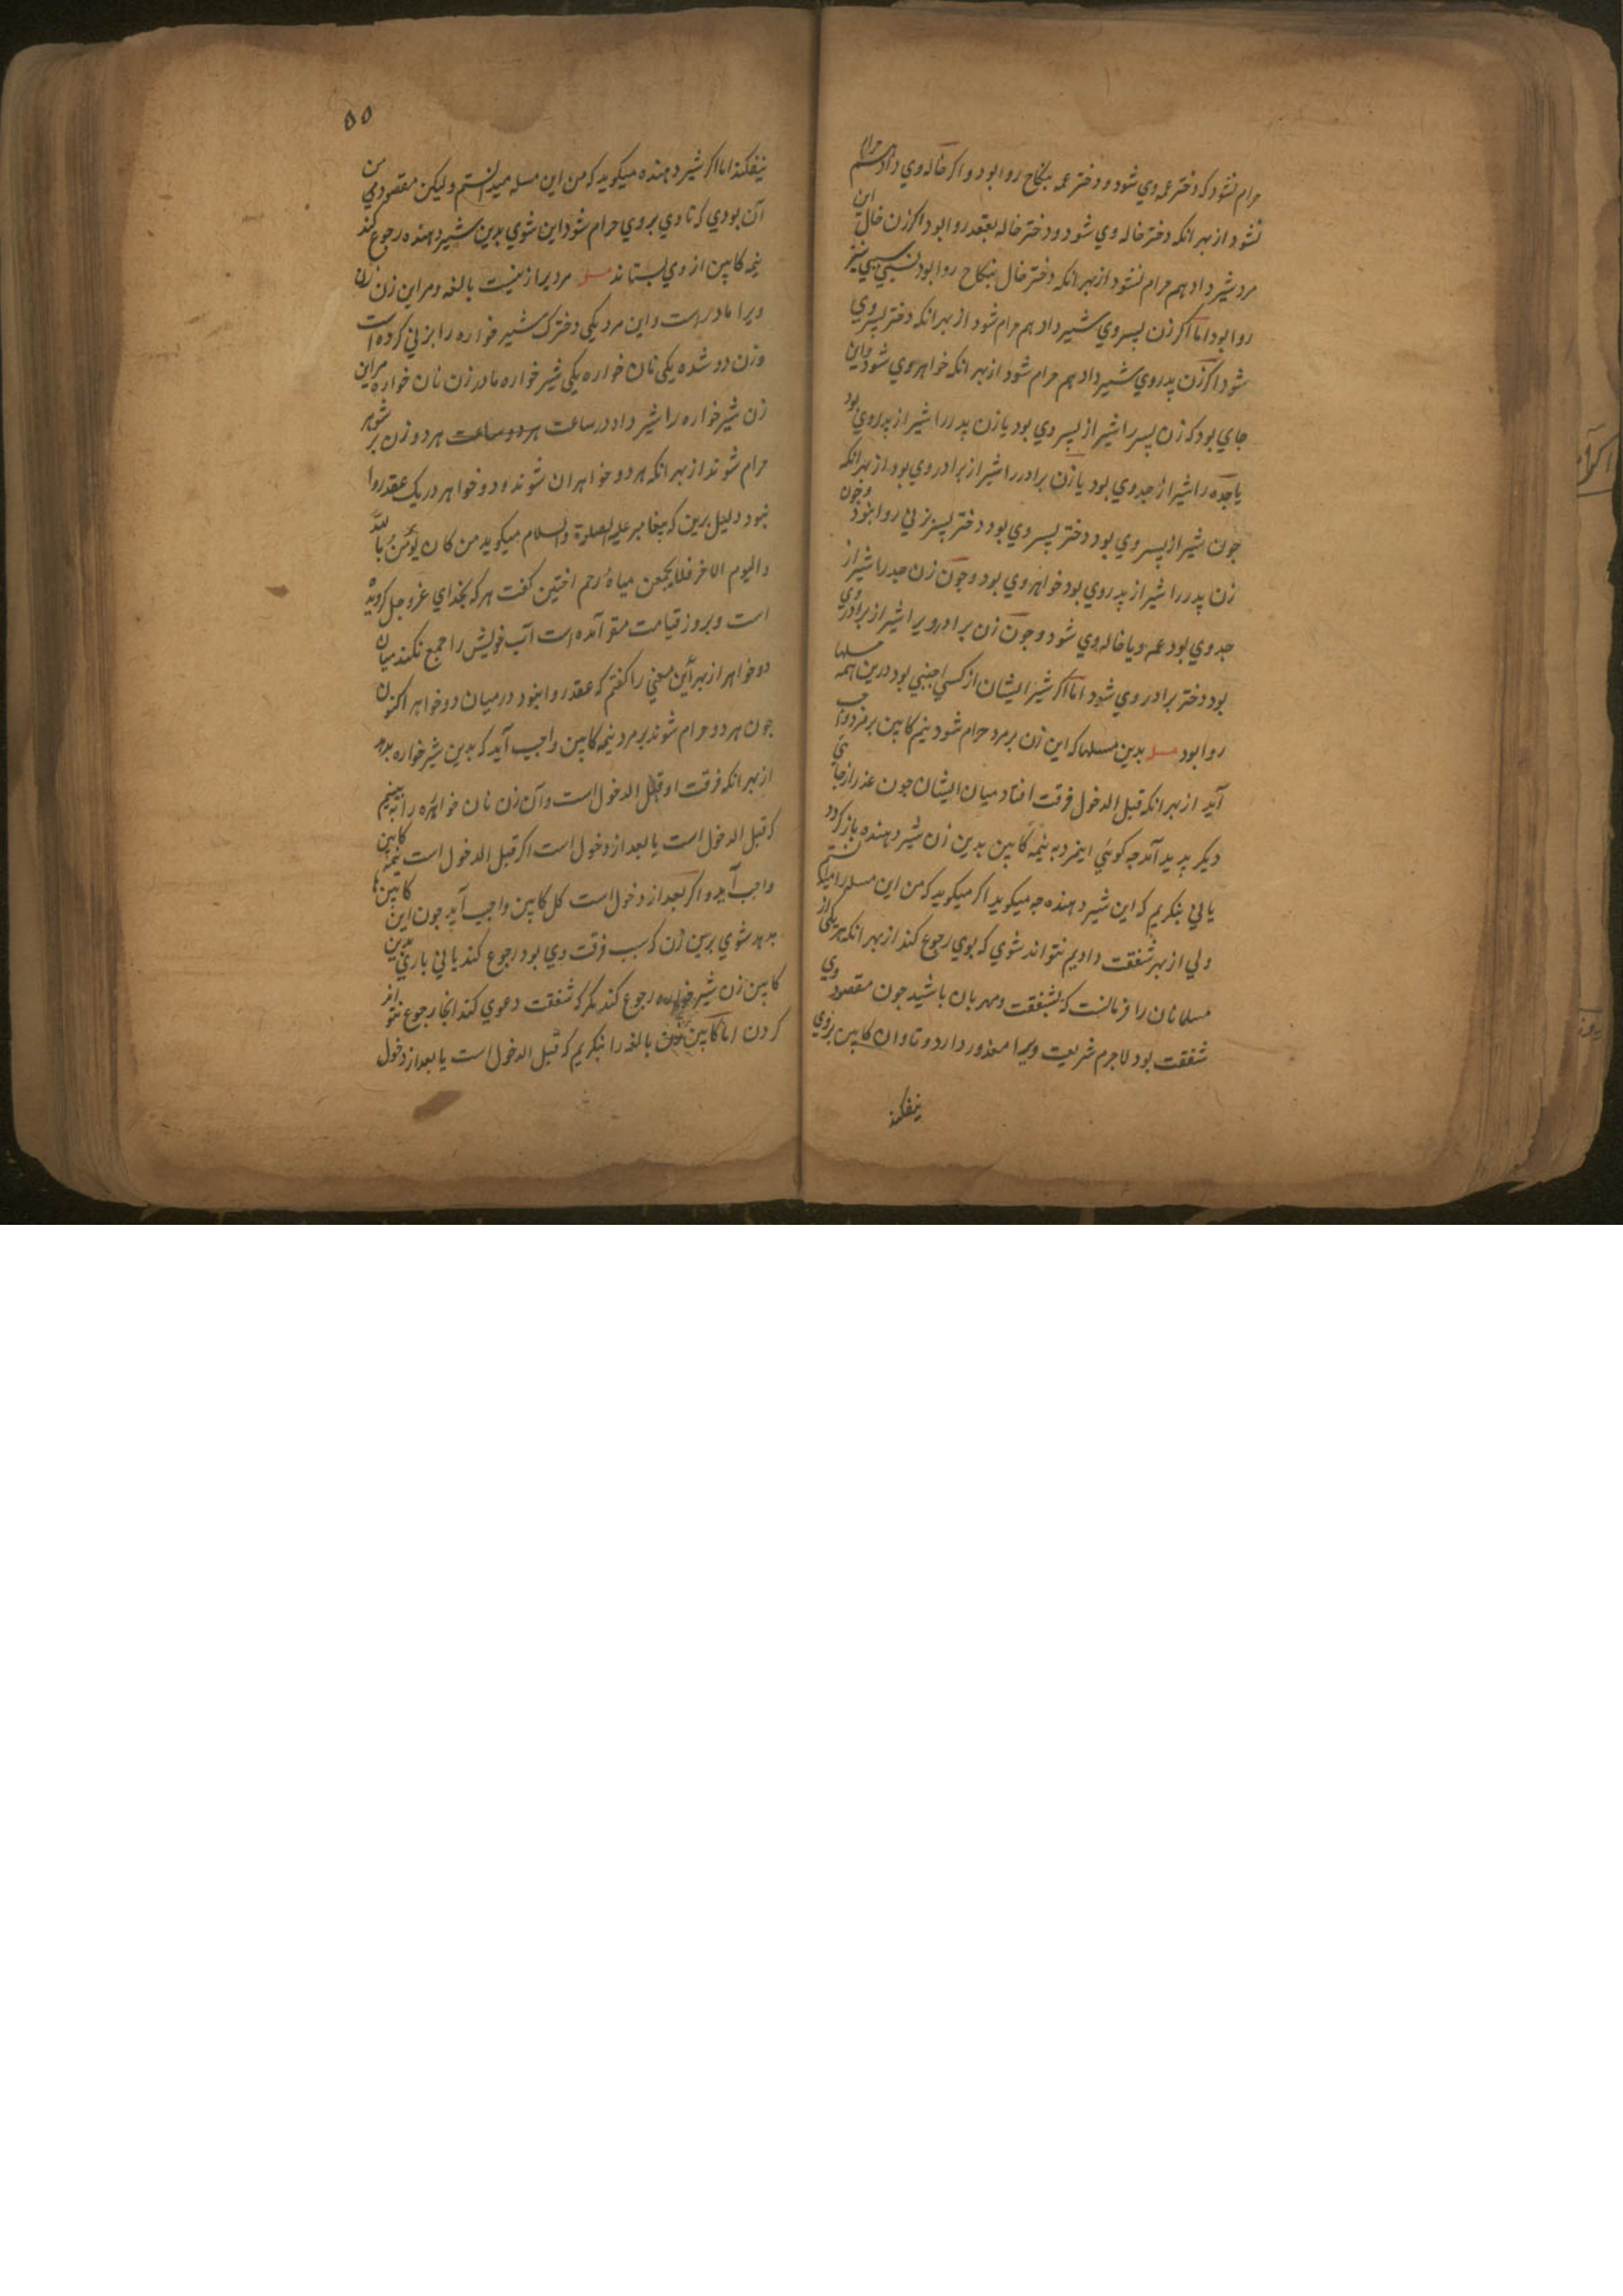 حرام نشود که دختر عمه وی شود و دختر عمه بنکاح روا بود و اکر خاله وی داد هم حرام
نشود از بهر انکه دختر خاله وی شود و دختر خاله بعقد روا بود اکر زن خال این
مرد شیر داد هم حرام نشود از بهر انکه دختر خال بنکاح روا بود نسبی نیز
روا بود اما اکر زن پسر وی شیر داد هم حرام شود از بهر انکه دختر پسر وی
شود اکر زن پدر وی شیر داد هم حرام شود از بهر انکه خواهر وی شود و این
جای بود که زن پسر را شیر از پسر وی بود یا زن پدر را شیر از پدر وی بود
یا جده را شیر از جد وی بود یا زن برادر را شیر از برادر وی بود از بهر انکه
جون شیر از پسر وی بود دختر پسر وی بود دختر پسر بزنی روا نبود وجون
زن پدر را شیر از پدر وی بود خواهر وی بود وجون زن جد را شیر از
جد وی بود عمه ویا خاله وی شود وجون زن برادر ویرا شیر از برادر وی
بود دختر برادر وی شود اما اکر شیر ایشان از کسی اجنبی بود درین همه مسلها
روا بود مسله بدین مسلها که این زن بر مرد حرام شود نیم کابین بر مرد واجب
آید از بهر انکه قبل الدخول فرقت افتاد میان ایشان جون عذر از جای
دیکر پدید آمد جه کوئی اینمرد به نیمه کابین بدین زن شیر دهنده باز کردد
یا نی بنکریم که این شیر دهنده جه میکوید اکر میکوید که من این مسله را میدانستم
ولی از بهر شفقت دادیم نتواند شوی که بوی رجوع کند از بهر انکه هر یکی از
مسلمانان را فرمانست که بشفقت ومهربان باشید جون مقصود وی
شفقت بود لاجرم شریعت ویرا معذور دارد وتاوان کابین بروی
نیفکند
۵۵
نیفکند اما اکر شیر دهنده میکوید که من این مسله میدانستم ولیکن مقصود من
آن بودی که تا وی بر وی حرام شود این شوی بدین شیر دهنده رجوع کند
نیمه کابین از وی بستاند مسله مردیرا زنیست بالغه ومر این زن
ویرا مادر است واین مرد یکی دخترک شیر خواره را بزنی کرده است
وزن دو شده یکی نان خواره یکی شیر خواره مادر زن نان خواره مر این
زن شیر خواره را شیر داد در ساعت هر دو ساعت هر دو زن بر شوهر
حرام شوند از بهر انکه هر دو خواهران شوند ودو خواهر در یک عقد روا
نبود دلیل برین که پیغامبر علیه الصلوة والسلام میکوید من کان یؤمن بالله
والیوم الاخر فلا یجمعن میاه رحم اختین کفت هر که بخدای عز وجل کرویده
است وبروز قیامت مقر آمده است آب خویش را جمع نکند میان
دو خواهر از بهر این معنی را کفتم که عقد روا نبود در میان دو خواهر اکنون
جون هر دو حرام شوند بر مرد نیمه کابین واجب آید که بدین شیر خواره بدهد
از بهر انکه فرقت او قبل الدخول است وآن زن نان خواره را ببینیم
که قبل الدخول است یا بعد از دخول است اکر قبل الدخول است نیمه کابین
واجب آید واکر بعد از دخول است کل کابین واجب آید جون این کابین
بدهد شوی برین زن که سبب فرقت وی بود رجوع کند یا نی باری بدین
کابین زن شیر خواره رجوع کند مکر که شفقت دعوی کند انجا رجوع نتواند
کردن اما کابین زن بالغه را بنکریم که قبل الدخول است یا بعد از دخول